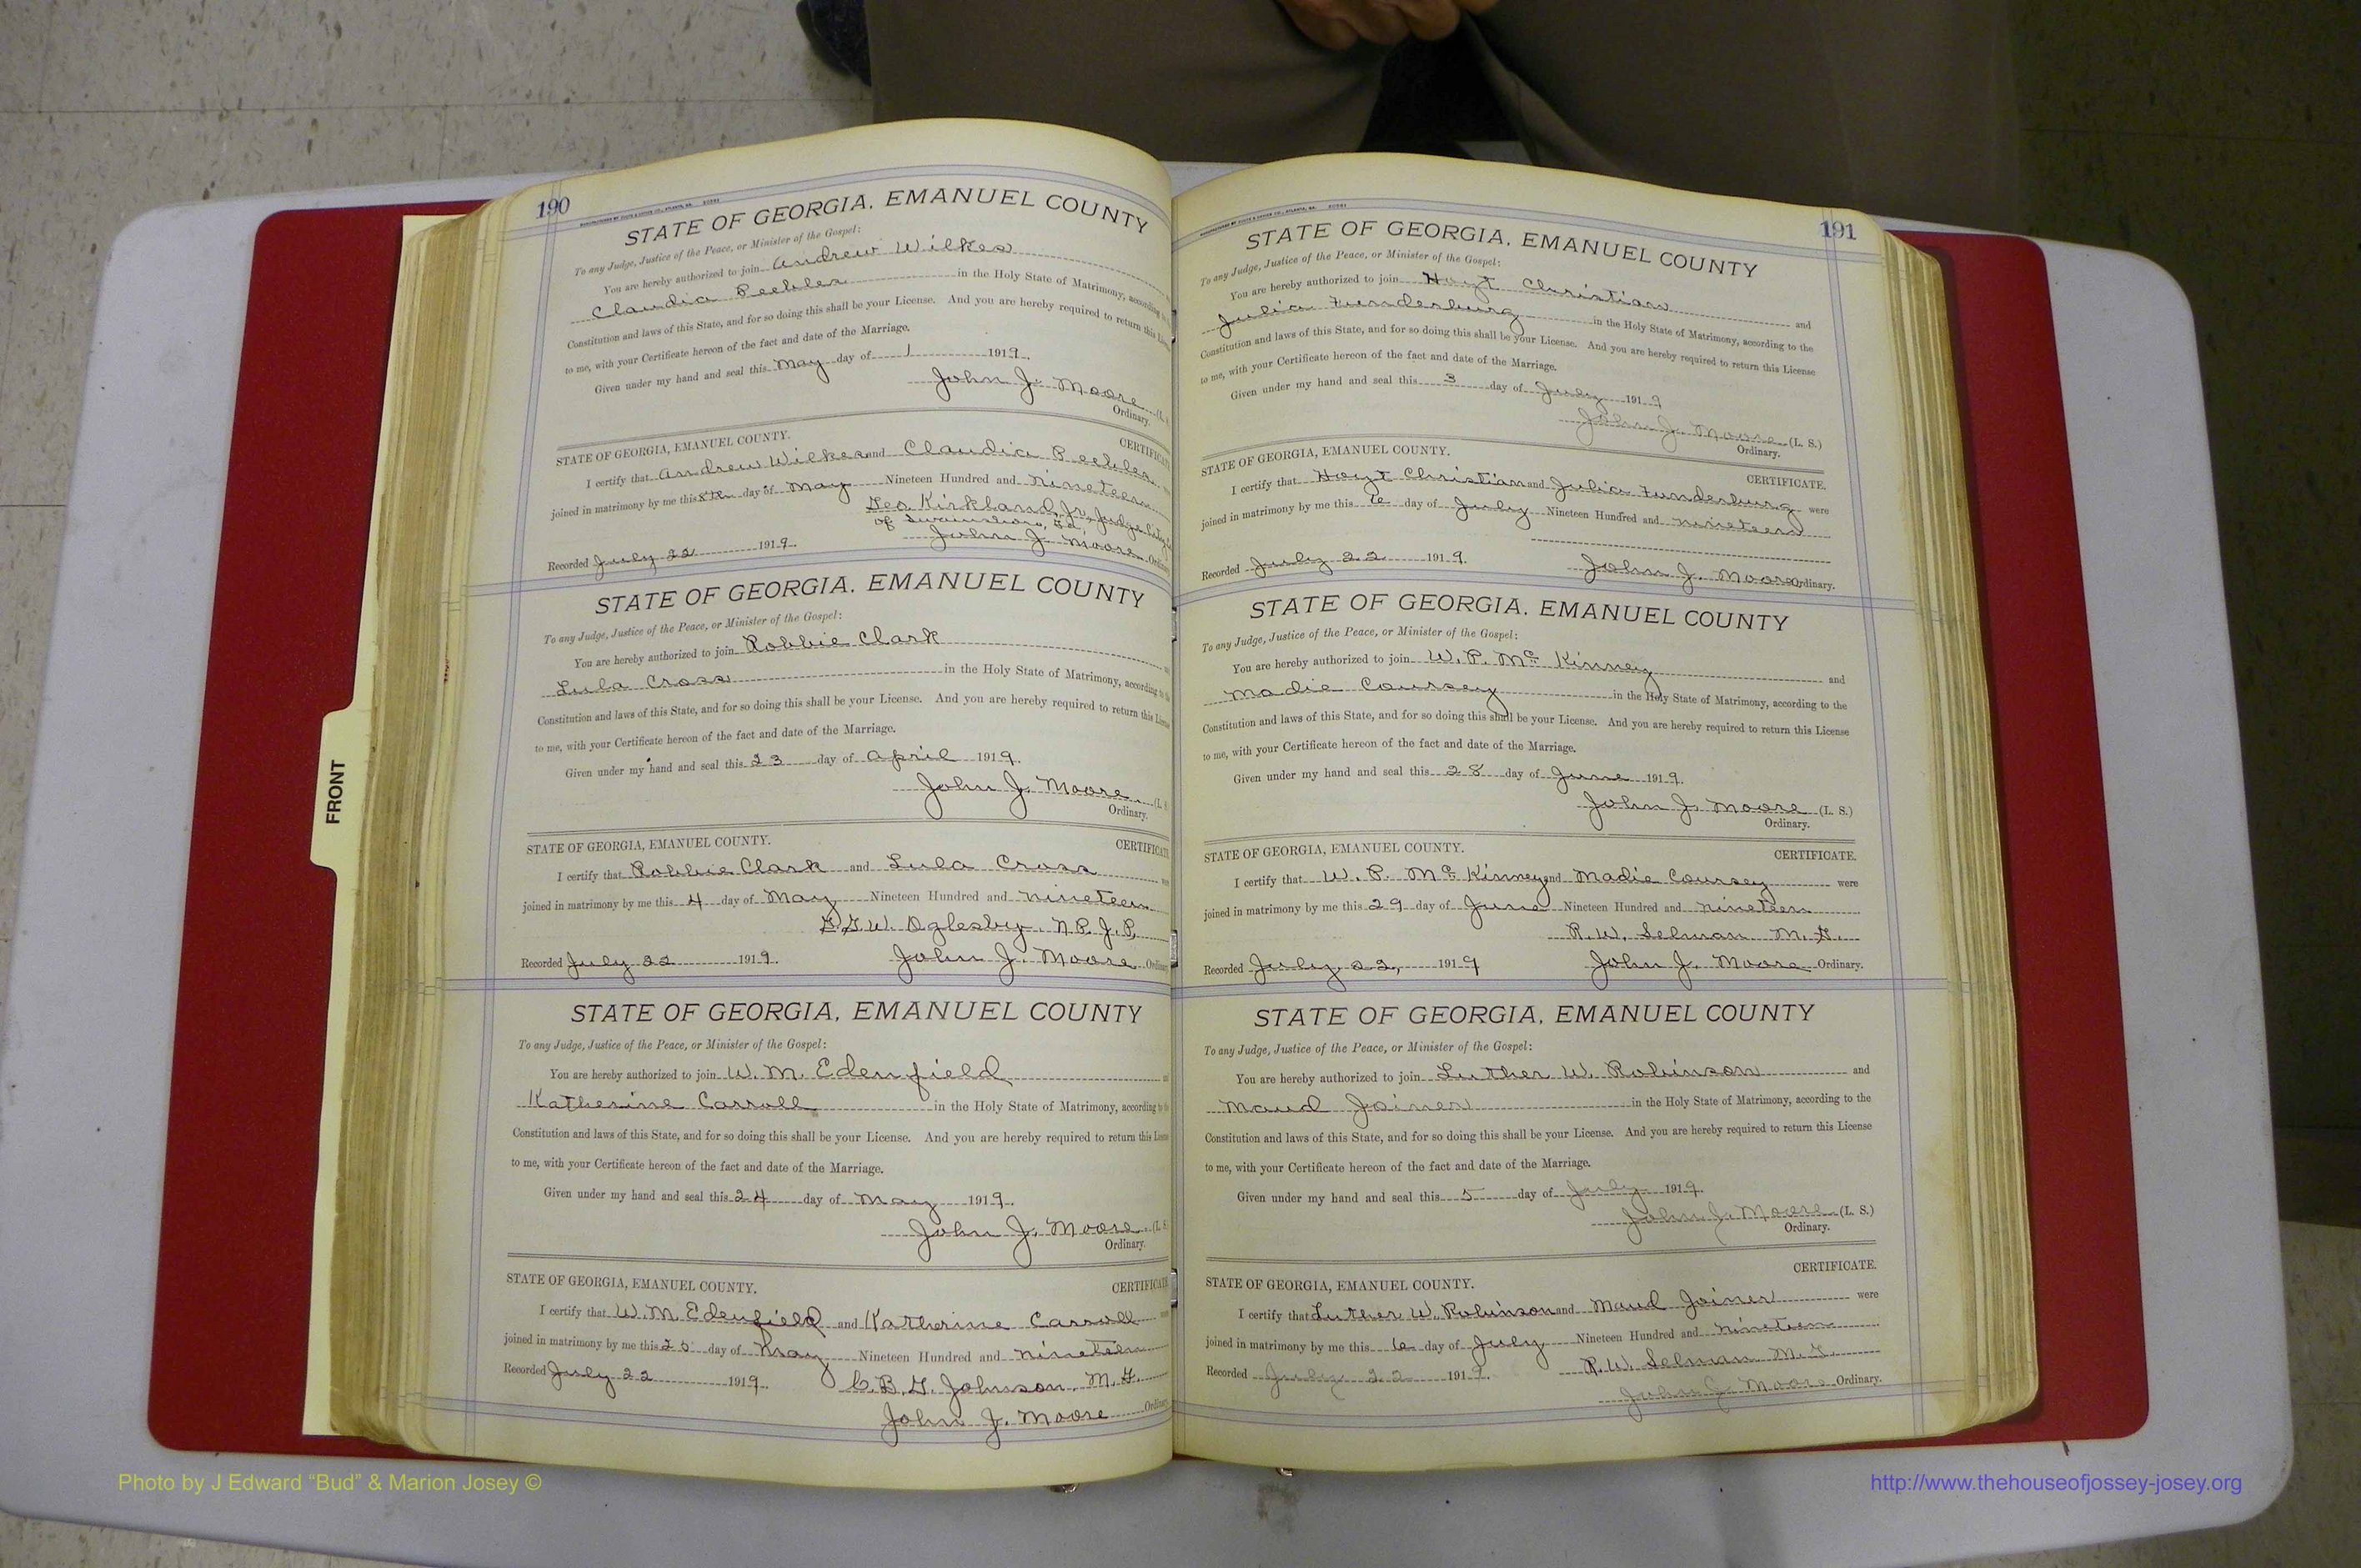 190
STATE OF GEORGIA, EMANUEL COUNTY
To any Judge, Justice of the Peace, or Minister of the Gospel:
You are hereby authorized to join Andrew Wilkes
Claudia Peebles in the Holy State of Matrimony, according
Constitution and laws of this State, and for so doing this shall be your License. And you are hereby required to return this
to me, with your Certificate hereon of the fact and date of the Marriage.
Given under my hand and seal this May day of 1 1919.
John J. Moore (L.
Ordinary.
STATE OF GEORGIA, EMANUEL COUNTY. CERTIFICATE
I certify that Andrew Wilkes and Claudia Peebles
joined in matrimony by me this 8th day of May Nineteen Hundred and nineteen
Geo. Kirkland, Jr., Judge City
of Swainsboro, Ga.
Recorded July 22 1919. John J. Moore Ordinary
STATE OF GEORGIA, EMANUEL COUNTY
To any Judge, Justice of the Peace, or Minister of the Gospel:
You are hereby authorized to join Robbie Clark
Lula Cross in the Holy State of Matrimony, according to the
Constitution and laws of this State, and for so doing this shall be your License. And you are hereby required to return this License
to me, with your Certificate hereon of the fact and date of the Marriage.
Given under my hand and seal this 23 day of April 1919.
John J. Moore (L. S
Ordinary.
STATE OF GEORGIA, EMANUEL COUNTY. CERTIFICATE
I certify that Robbie Clark and Lula Cross
joined in matrimony by me this 4 day of May Nineteen Hundred and nineteen
G.W. Oglesby. N.P.J.P.
Recorded July 22 1919. John J. Moore Ordinary
STATE OF GEORGIA, EMANUEL COUNTY
To any Judge, Justice of the Peace, or Minister of the Gospel:
You are hereby authorized to join W. M. Edenfield
Katherine Carroll in the Holy State of Matrimony, according to the
Constitution and laws of this State, and for so doing this shall be your License. And you are hereby required to return this License
to me, with your Certificate hereon of the fact and date of the Marriage.
Given under my hand and seal this 24 day of May 1919.
John J. Moore (L. S
Ordinary.
STATE OF GEORGIA, EMANUEL COUNTY. CERTIFICATE
I certify that W. M. Edenfield and Katherine Carroll
joined in matrimony by me this 25 day of May Nineteen Hundred and nineteen
Recorded July 22 1919. C. B. G. Johnson, M. G.
John J. Moore Ordinary
191
STATE OF GEORGIA, EMANUEL COUNTY
To any Judge, Justice of the Peace, or Minister of the Gospel:
You are hereby authorized to join Hoyt Christian and
Julia Funderburg in the Holy State of Matrimony, according to the
Constitution and laws of this State, and for so doing this shall be your License. And you are hereby required to return this License
to me, with your Certificate hereon of the fact and date of the Marriage.
Given under my hand and seal this 3 day of July 1919
John J. Moore (L. S.)
Ordinary.
STATE OF GEORGIA, EMANUEL COUNTY. CERTIFICATE.
I certify that Hoyt Christian and Julia Funderburg were
joined in matrimony by me this 6 day of July Nineteen Hundred and nineteen
Recorded July 22 1919. John J. Moore Ordinary.
STATE OF GEORGIA, EMANUEL COUNTY
To any Judge, Justice of the Peace, or Minister of the Gospel:
You are hereby authorized to join W. P. McKinney and
Madie Coursey in the Holy State of Matrimony, according to the
Constitution and laws of this State, and for so doing this shall be your License. And you are hereby required to return this License
to me, with your Certificate hereon of the fact and date of the Marriage.
Given under my hand and seal this 28 day of June 1919.
John J. Moore (L. S.)
Ordinary.
STATE OF GEORGIA, EMANUEL COUNTY. CERTIFICATE.
I certify that W. P. McKinney and Madie Coursey were
joined in matrimony by me this 29 day of June Nineteen Hundred and nineteen
R. W. Selman M. G.
Recorded July 22, 1919 John J. Moore Ordinary.
STATE OF GEORGIA, EMANUEL COUNTY
To any Judge, Justice of the Peace, or Minister of the Gospel:
You are hereby authorized to join Luther W. Robinson and
Maud Joiner in the Holy State of Matrimony, according to the
Constitution and laws of this State, and for so doing this shall be your License. And you are hereby required to return this License
to me, with your Certificate hereon of the fact and date of the Marriage.
Given under my hand and seal this 5 day of July 1919.
John J. Moore (L. S.)
Ordinary.
CERTIFICATE.
STATE OF GEORGIA, EMANUEL COUNTY.
I certify that Luther W. Robinson and Maud Joiner were
joined in matrimony by me this 6 day of July Nineteen Hundred and nineteen
Recorded July 22 1919. R. W. Selman M. G.
John J. Moore Ordinary.
FRONT
Photo by J Edward “Bud” & Marion Josey ©
http://www.thehouseofjossey-josey.org